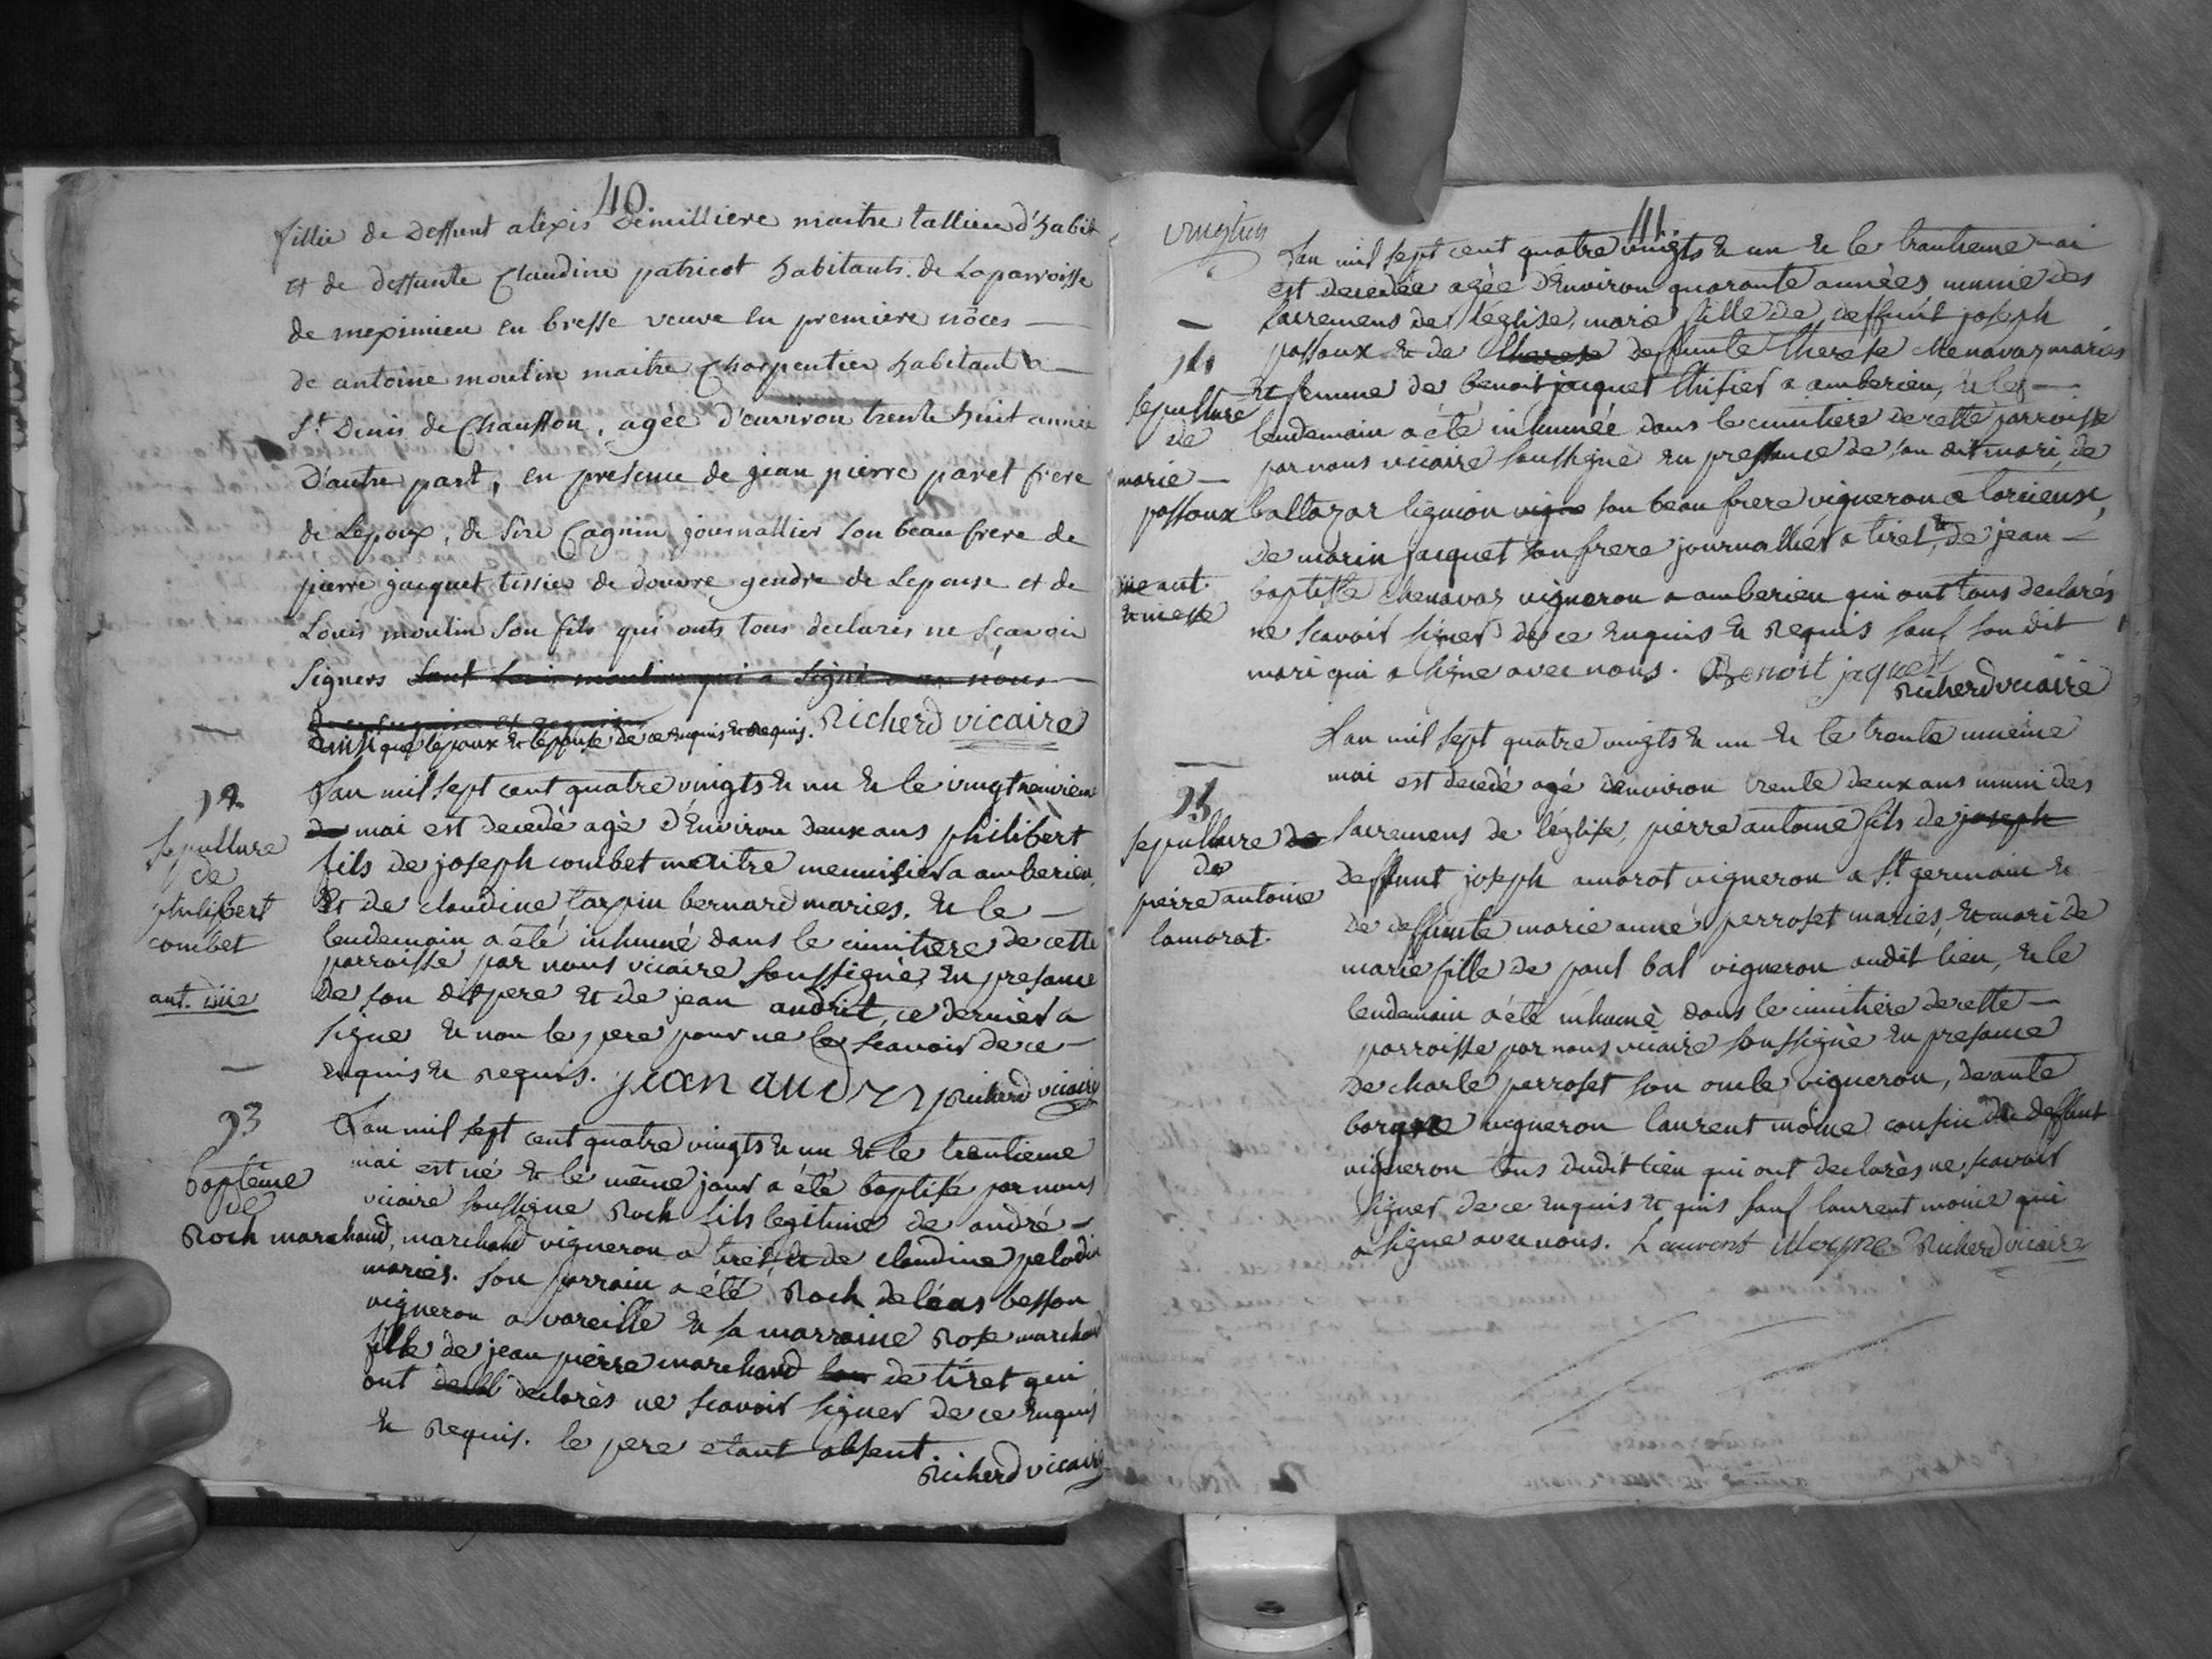 40.
fillie de deffunt alexis Demilliere maitre tallieur d'habit
et de deffunte Claudine patricot habitants de Laparroisse
de meximieu en bresse veuve en premiere nôces —
de antoine moulin maitre Charpentier habitant a —
St Denis de Chausson, agée d'environ trente huit année
D'autre part, en presence de jean pierre paret frere
de Lepoux, de Siré Cagnin journallier son beau frere de
pierre jacquet tissier de douvre gendre de Lepouse et de
Louis moulin son fils qui onts tous declarés ne scavoir
Signers Sauf Louis moulin qui a Signé avec nous
de ce enquis et requis
ainsi que lepoux et lepouse de ce enquis et requis. Richerd vicaire
92
Sepulture
de
philibert
combet
ant. une
L'an mil sept cent quatre vingts et un et le vingt neuvieme
de mai est decedé agé d'Environ deux ans philibert
fils de joseph combet maitre menuisier a amberieu
Et de claudine tarpin bernard maries. Et le —
lendemain a été inhumé dans le cimitiere de cette
parroisse par nous vicaire soussigné, En presance
de son dit pere Et de jean audrit, ce dernier a
signe Et non le pere pour ne le scavoir de ce —
enquis Et requis. jean audry Richerd vicaire
93
baptême
de
Roch marchand,
L'an mil sept cent quatre vingts Et un Et le trentieme
mai est né Et le même jour a été baptisé par nous
vicaire soussigne Roch fils legitime de andré —
marchand vigneron a tiret, Et de claudine pelodin
mariés. Son parrain a été Roch deléas besson
vigneron a vareille Et sa marraine Rose marchand
fille de jean pierre marchand de tiret qui
ont declarés ne scavoir signer de ce Enquis
Et Requis. le pere etant absent.
Richerd vicaire
41.
vingtun
94
sepulture
de
marie —
possoux
une ant
L'an mil sept cent quatre vingts Et un Et le trentieme mai
est decedée agée d'Environ quarante années munie des
sacremens de l'église, marie fille de deffunt joseph
possoux Et de therese deffunte therese chenavaz mariés
Et femme de benoit jacquet thisier a amberieu, Et le —
lendemain a été inhumée dans le cimitiere de cette parroisse
par nous vicaire soussigné En presance de son dit mari, de
baltazar lignion vigne son beau frere vigneron a torcieux,
de marin jacquet son frere journallier a tiret, Et de jean —
baptiste chenavaz vigneron a amberieu qui ont tous declarés
ne scavoir signer de ce Enquis Et Requis sauf son dit
mari qui a signe avec nous. Benoit jaquet
Richerd vicaire
95
sepulture de
de
pierre antoine
lamorat.
L'an mil sept quatre vingts Et un Et le trente unieme
mai est decedé agé d'environ trente deux ans muni des
sacremens de l'église, pierre antoine fils de joseph
deffunt joseph amorat vigneron a St germain Et
de deffunte marie anne perroset mariés, Et mari de
marie fille de paul bal vigneron audit lieu, Et le
lendemain a été inhumé dans le cimitiere de cette —
parroisse par nous vicaire soussigné En presance
de charle perroset son oncle vigneron, de ante
borgne vigneron laurent moine cousin du deffunt
vigneron tous dudit lieu qui ont declarés ne scavoir
signer de ce Enquis Et quis sauf laurent moine qui
a signe avec nous. Lauront Moyne Richerd vicaire